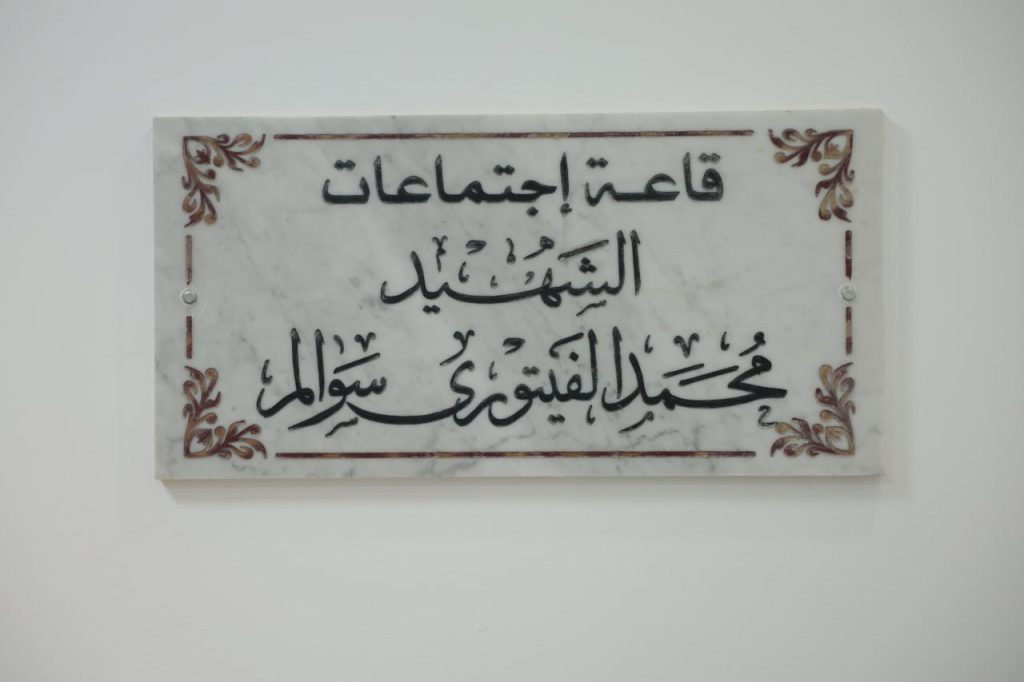 قاعة إجتماعات
الشهيد
محمد الفيتوري سوالم